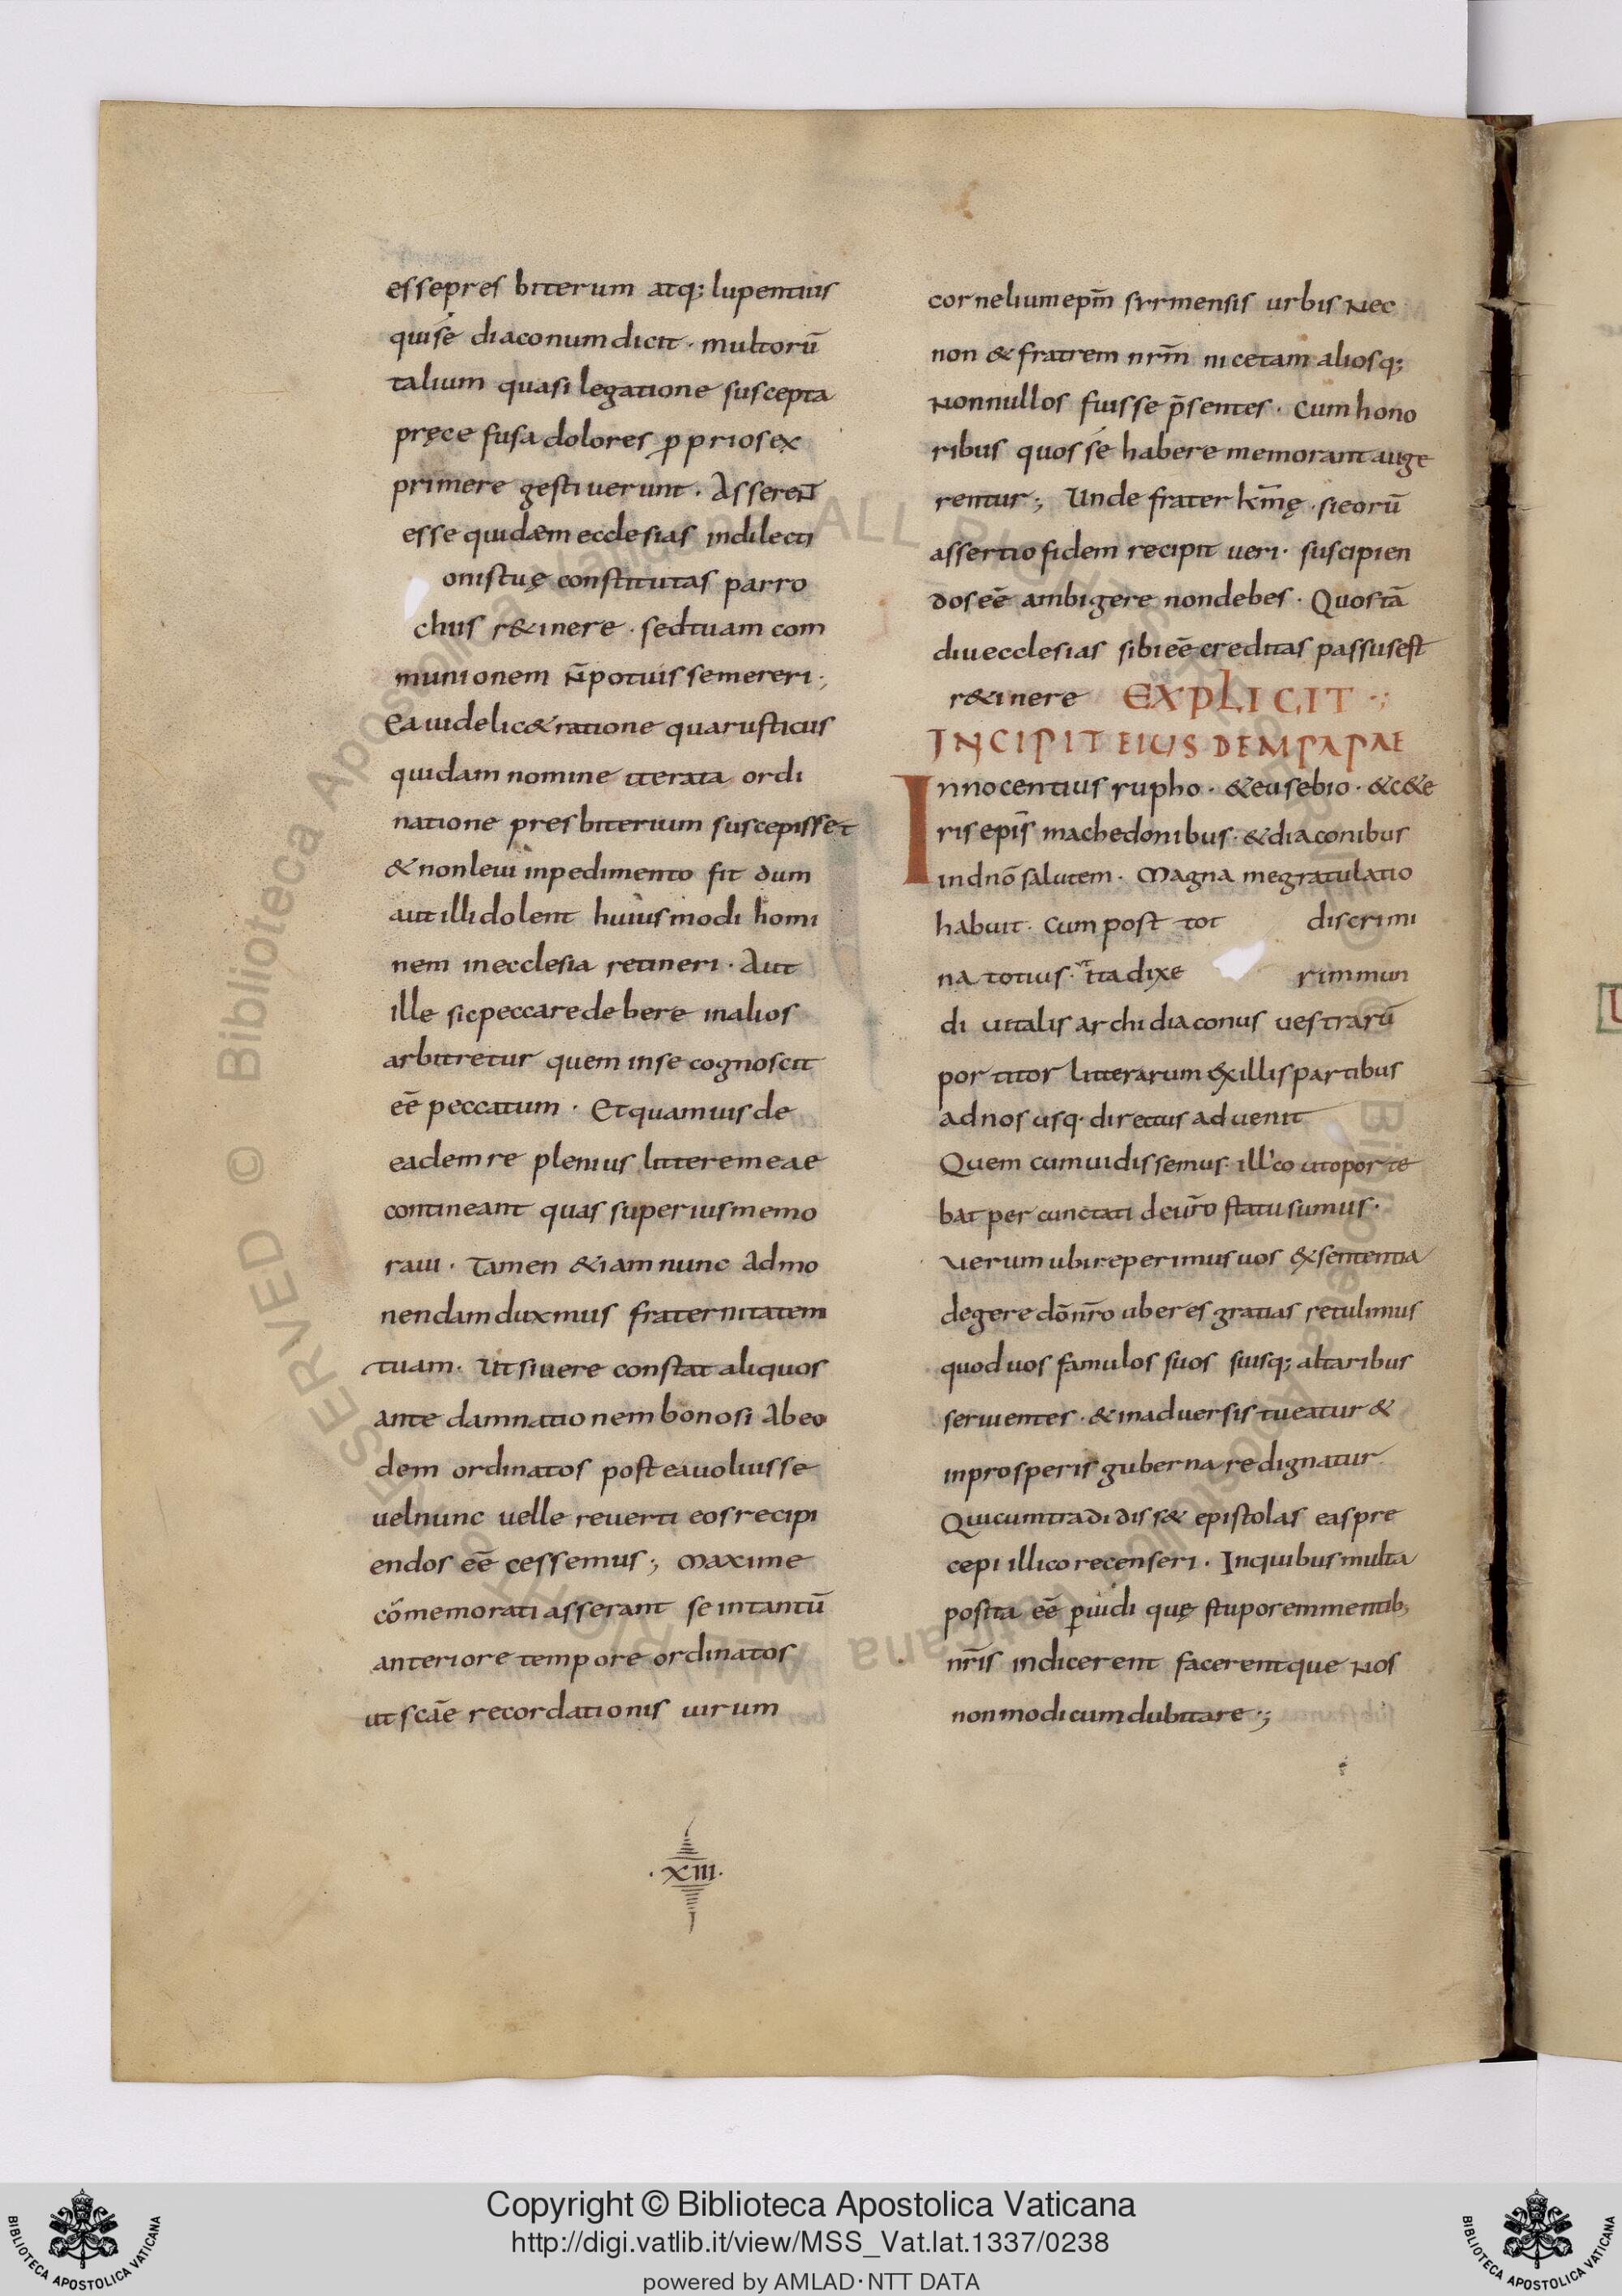 esse presbiterum atq; lupentius
qui se diaconum dicit · multorū
talium quasi legatione suscepta
pręce fusa dolores ꝓprios ex
primere gestiuerunt · Asserenꞇ̄
esse quidæm ecclesias in dilecti
onis tuę constitutas parro
chiis r&inere · sed tuam com
munionem n̄ potuisse mereri ·,
Ea uidelic& ratione qua rusticus
quidam nomine iterata ordi
natione presbiterium suscepisset
& non leui inpedimento fit dum
aut illi dolent huiusmodi homi
nem in ecclesia retineri · Aut
ille sic peccare debere in alios
arbitretur quem in se cognoscit
eē peccatum · Et quamuis de
eadem re plenius littere meae
contineant quas superius memo
raui · Tamen &iam nunc admo
nendam duxmus fraternitatem
tuam · Ut si uere constat aliquos
ante damnationem bonosi ab eo
dem ordinatos postea uoluisse
uel nunc uelle reuerti eos recipi
endos eē cessemus ; Maxime
cōmemorati asserant se in tantū
anteriore tempore ordinatos
ut scāe recordationis uirum
cornelium epm̄ syrmensis urbis nec
non & fratrem nrm̄ nicetam aliosq;
nonnullos fuisse p̄sentes · Cum hono
ribus quos se habere memorant auge
rentur ; Unde frater km̄ę · si eorū
assertio fidem recipit ueri · suscipien
dos eē ambigere non debes · Quos tā
diu ecclesias sibi eē creditas passus est
r&inere EXPLICIT ·;
INCIPIT EIUSDEM PAPAE
Innocentius rupho · & eusebio · & c&e
ris epis̄ machedonibus · & diaconibus
in dnō salutem · Magna me gratulatio
habuit · Cum post tot discrimi
na totius · ut ita dixe rim mun
di uitalis archidiaconus uestrarū
portitor litterarum ex illis partibus
ad nos usq · directus aduenit
Quem cum uidissemus · ill'co ut opor te
bat percunctati de ur̄o statu sumus ·
Uerum ubi reperimus uos ex sententia
degere dō nr̄o uberes gratias retulimus
quod uos famulos suos suisq; altaribus
seruientes · & in aduersis tueatur &
in prosperis gubernare dignatur ·
Qui cum tradidiss& epistolas eas pre
cepi illico recenseri · In quibus multa
posita eē ꝑuidi quę stuporem mentib;
nr̄is indicerent facerentque nos
non modicum dubitare ·;
· XIII ·
Copyright © Biblioteca Apostolica Vaticana
http://digi.vatlib.it/view/MSS_Vat.lat.1337/0238
powered by AMLAD·NTT DATA
BIBLIOTECA APOSTOLICA VATICANA
BIBLIOTECA APOSTOLICA VATICANA